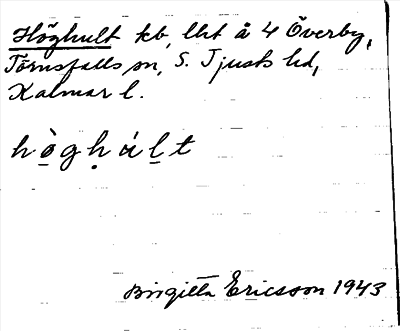 Höghult kb, lht å 4 Överby,
Törnsfalls sn, S. Tjusts hd,
Kalmar l.
hò̱gḥúḻt
Birgitta Ericsson 1943